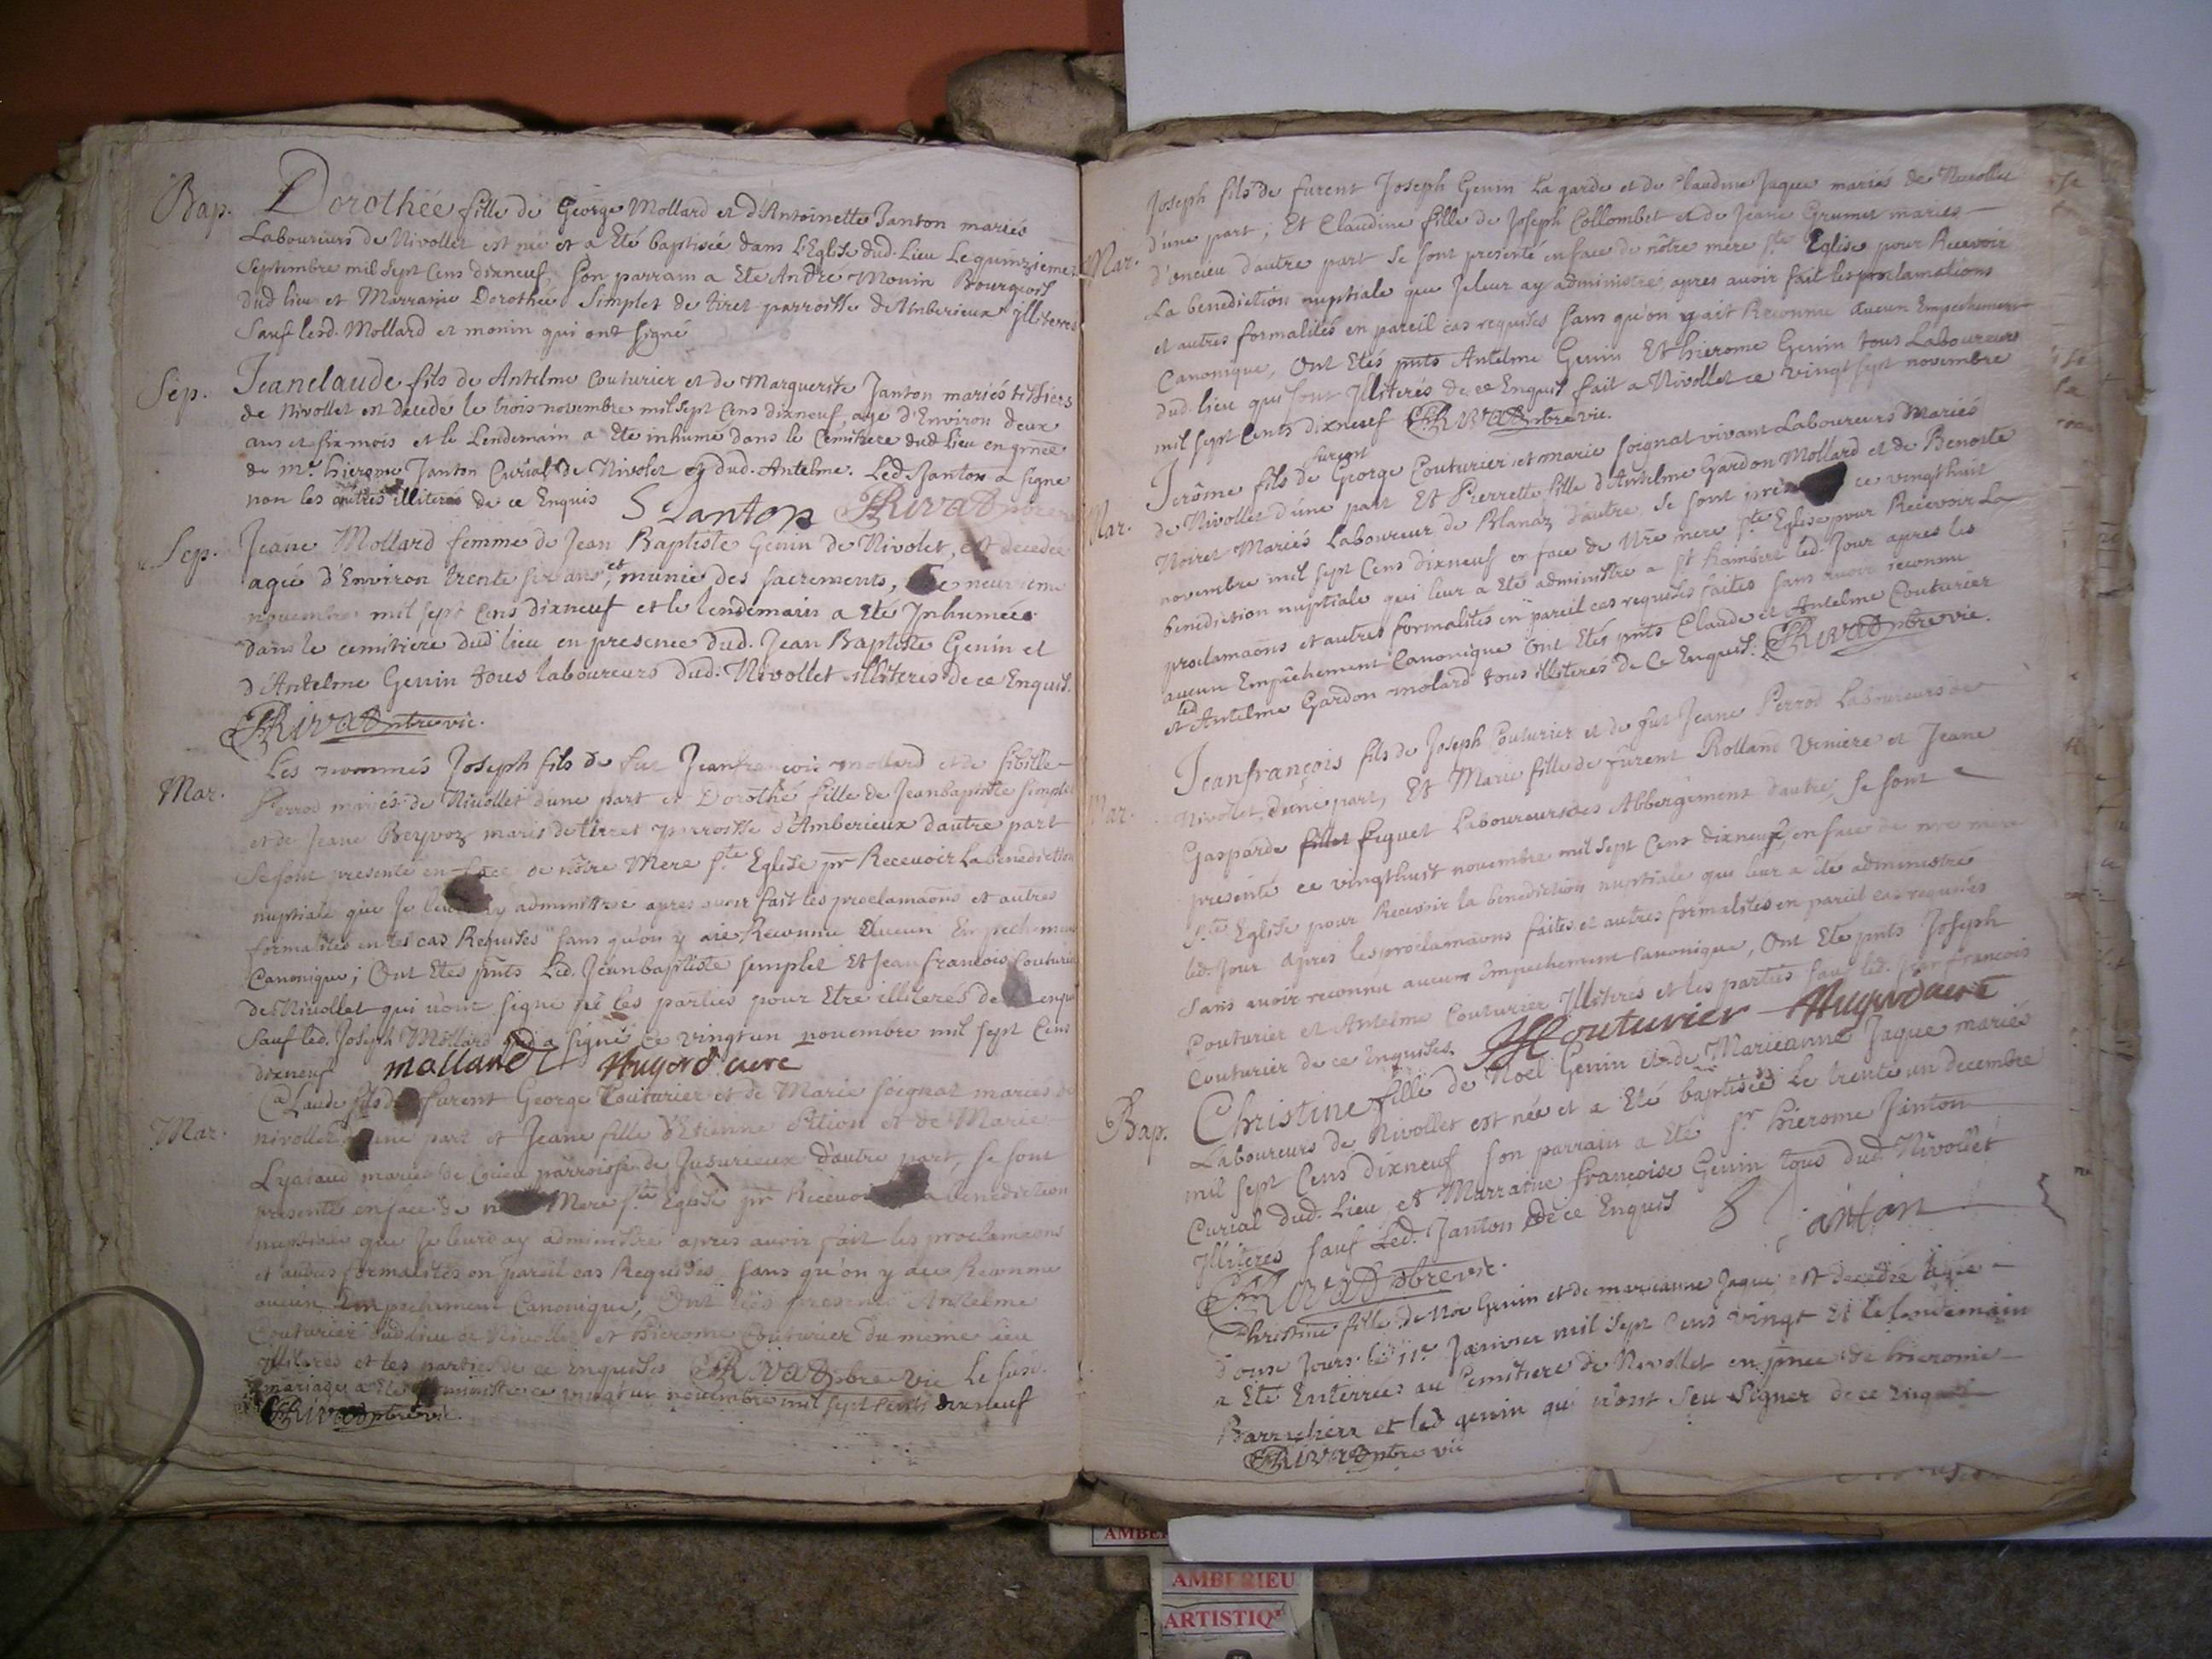 Bap. Dorothée fille de George Mollard et d'Antoinette Janton mariés
Laboureurs de Nivollet est née et a Eté baptisée dans L'Eglise dud. Lieu Le quinzieme
Septembre mil sept Cens dixneuf, son parrain a Ete André Monin Bourgeois
dud lieu et Marraine Dorothée Simplet de tiret parroisse d'Amberieux illiteres
Sauf lesd. Mollard et monin qui ont signé
Sep. Jeanclaude fils de Antelme Couturier et de Marguerite Janton mariés tissiers
de Nivollet est decedé le trois novembre mil sept Cens dixneuf, agé d'Environ deux
ans et six mois et le Lendemain a Eté inhumé dans le Cemitiere dud Lieu en
de Mr. hierome Janton Curial de Nivolet et dud. Antelme. Led. Janton a signé
non les autres illiterés de ce Enquis S Janton
Sep. Jeane Mollard femme de Jean Baptiste Genin de Nivolet, est decedée
agée d'Environ trente six ans, et munie des sacrements, le neuvieme
novembre mil sept Cens dixneuf et le lendemain a Eté Inhumée
Dans le cemitiere dud lieu en presence dud. Jean Baptiste Genin et
d'Antelme Genin tous laboureurs dud. Nivollet illiteres de ce Enquis.
Rivat ptre vic.
Les nommés Joseph fils de fut Jeanfrançois mollard et de Sibille
Mar. Perrod mariés de Nivollet d'une part et Dorothé fille de Jeanbaptiste Simplet
et de Jeane Beyvoz mariés de tirret parroisse d'Amberieux d'autre part
se sont presenté en face de nôtre Mere Ste. Eglise pr Recevoir La benediction
nuptiale que Je leur ay administré apres avoir fait les proclamaons et autres
formalités en tel cas Requises sans qu'on y aie Reconnu Aucun Empechement
Canonique; Ont Etés pnts Led. Jeanbaptiste Simplet Et Jean francois Couturier
de Nivollet qui n'ont signé ne les parties pour Etre illiterés de enquis
Sauf led. Joseph Mollard qui a signé ce vingt un novembre mil sept Cens
dixneuf mollard Hugord curé
Mar. Claude fils de furent George Couturier et de Marie Soignat mariés de
nivollet d'une part et Jeane fille d'Etienne et de Marie
mariés de parroisse de Jusurieux d'autre part, se sont
presenté en face de Mere Ste. Eglise pr Recevoir la benediction
nuptiale que Je leur ay administré apres avoir fait les proclamaons
et autres formalités en pareil cas Requises sans qu'on y aie Reconnu
aucun Empechement Canonique, Ont Etés presents Antelme
Couturier dud lieu de Nivollet et hierome Couturier du meme lieu
illiterés et les parties de ce Enquises Rivat ptre vic Le susd.
mariage a Eté administré ce vingt un novembre mil sept Cents dixneuf
Rivat ptre vic.
Joseph fils de furent Joseph Genin La garde et de Claudine Jaque mariés de Nivollet
Mar. d'une part; Et Claudine fille de Joseph Collombet et de Jeane Grumet mariés
d'encieu d'autre part se sont presenté en face de nôtre mere Ste. Eglise pour Recevoir
La benediction nuptiale que Je leur ay administré apres avoir fait les proclamations
et autres formalités en pareil cas requises sans qu'on y ait Reconnu Aucun Empechement
Canonique, Ont Etés pnts Antelme Genin Et hierome Genin tous Laboureurs
dud. lieu qui sont Illiterés de ce Enquis fait a Nivollet ce vingt sept novembre
mil sept Cents dixneuf Rivat ptre vic.
Mar. Jerôme fils de furent George Couturier et marie soignat vivant Laboureurs Mariés
de Nivollet d'une part Et Pierrette fille d'Antelme Gardon Mollard et de Benoite
Noiret Mariés Laboureur de Blanaz d'autre, se sont ce vingthuit
novembre mil sept Cens dixneuf en face de Nre mere Ste. Eglise pour Recevoir La
benediction nuptiale qui leur a Eté administré a St Rambert led. Jour apres les
proclamaons et autres formalités en pareil cas requises faites sans avoir reconnu
aucun Empêchement Canonique Ont Etés pnts Claude et Antelme Couturier
et led Antelme Gardon molard tous illiterés de Ce Enquis. Rivat ptre vic.
Mar. Jeanfrançois fils de Joseph Couturier et de fut Jeane Perrod Laboureurs de
Nivolet d'une part, Et Marie fille de furent Rolland Veniere et Jeane
Gasparde Figuet Laboureurs des Abbergement d'autre, se sont
presenté ce vingthuit novembre mil sept Cens dixneuf, en face de nre mere
Ste. Eglise pour Recevoir la benediction nuptiale que leur a éte administré
led. Jour apres les proclamaons faites et autres formalités en pareil cas requises
sans avoir reconnu aucun Empechement Canonique, Ont Eté pnts Joseph
Couturier et Antelme Couturier Illiteres et les parties sauf led. Jean francois
Couturier de ce Enquises. Couturier Hugord curé
Bap. Christine fille de Noel Genin et de Marieanne Jaque mariés
Laboureurs de Nivollet est née et a Eté baptisée Le trente un decembre
mil sept Cens dixneuf son parrain a Eté Sr. hierome Janton
Curial dud. Lieu et Marraine françoise Genin tous dud. Nivollet
Illiterés sauf Led. Janton de ce Enquis Janton
Rivat ptre vic.
Christine fille de Noe Genin et de marieanne Jaque est decedée agée
d'onse Jours le 11e. Janvier mil sept Cens vingt Et le lendemain
a Eté Enterrée au Cemitiere de Nivollet en pnce de hierome
et led genin qui n'ont sçu signer de ce Enquis
Rivat ptre vic
AMBERIEU
ARTISTIQ